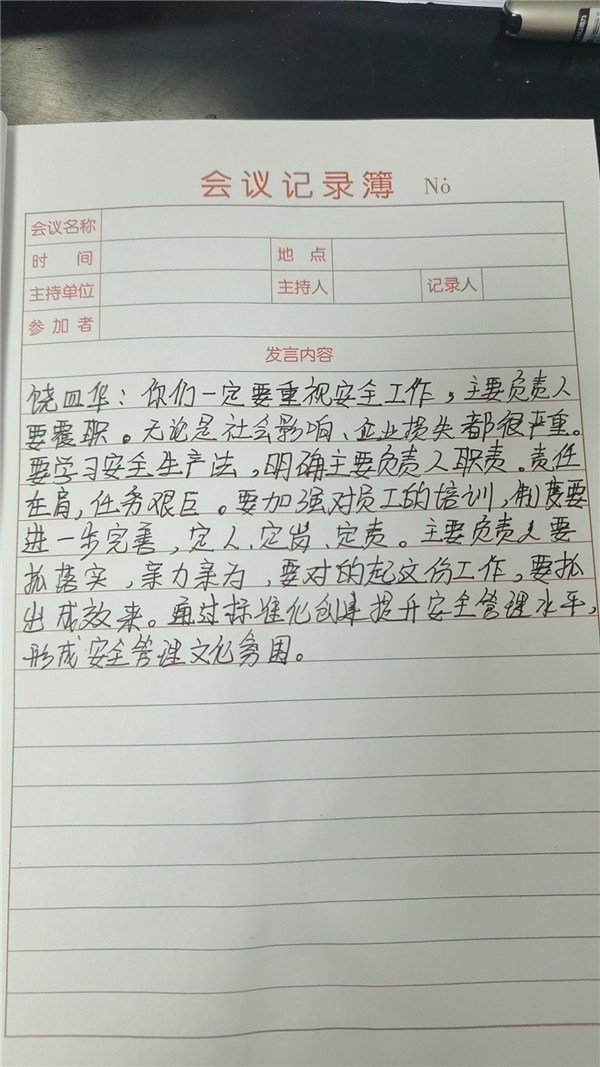 会议记录簿 No
会议名称
时 间 地 点
主持单位 主持人 记录人
参加者
发言内容
饶四华：你们一定要重视安全工作，主要负责人
要履职。无论是社会影响、企业损失都很严重。
要学习安全生产法，明确主要负责人职责。责任
在肩，任务艰巨。要加强对员工的培训，制度要
进一步完善，定人、定岗、定责。主要负责人要
抓落实，亲力亲为，要对的起这份工作，要抓
出成效来。通过标准化创建提升安全管理水平，
形成安全管理文化氛围。